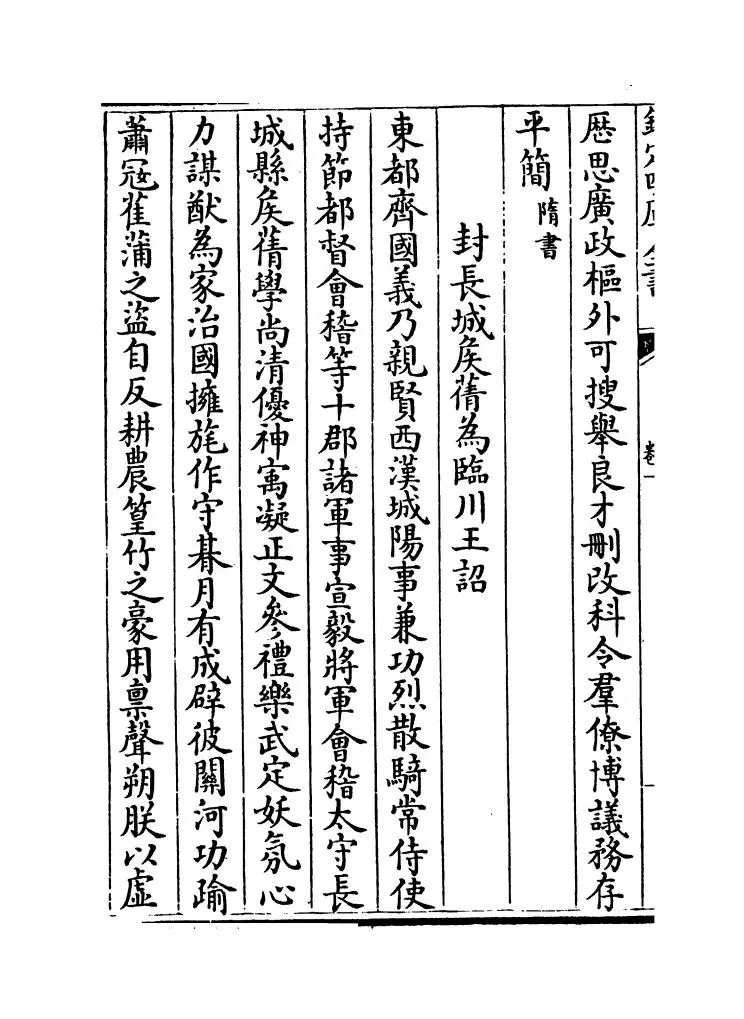 欽定四庫全書
卷一
厯思廣政樞外可搜舉良才刪改科令羣僚博議務存
平簡隋書
封長城矦蒨為臨川王詔
東都齊國義乃親賢西漢城陽事兼功烈散騎常侍使
持節都督會稽等十郡諸軍事宣毅將軍會稽太守長
城縣矦蒨學尚清優神寓凝正文參禮樂武定妖氛心
力謀猷為家治國擁旄作守朞月有成辟彼關河功踰
蕭冦萑蒲之盜自反耕農篁竹之豪用禀聲朔朕以虛